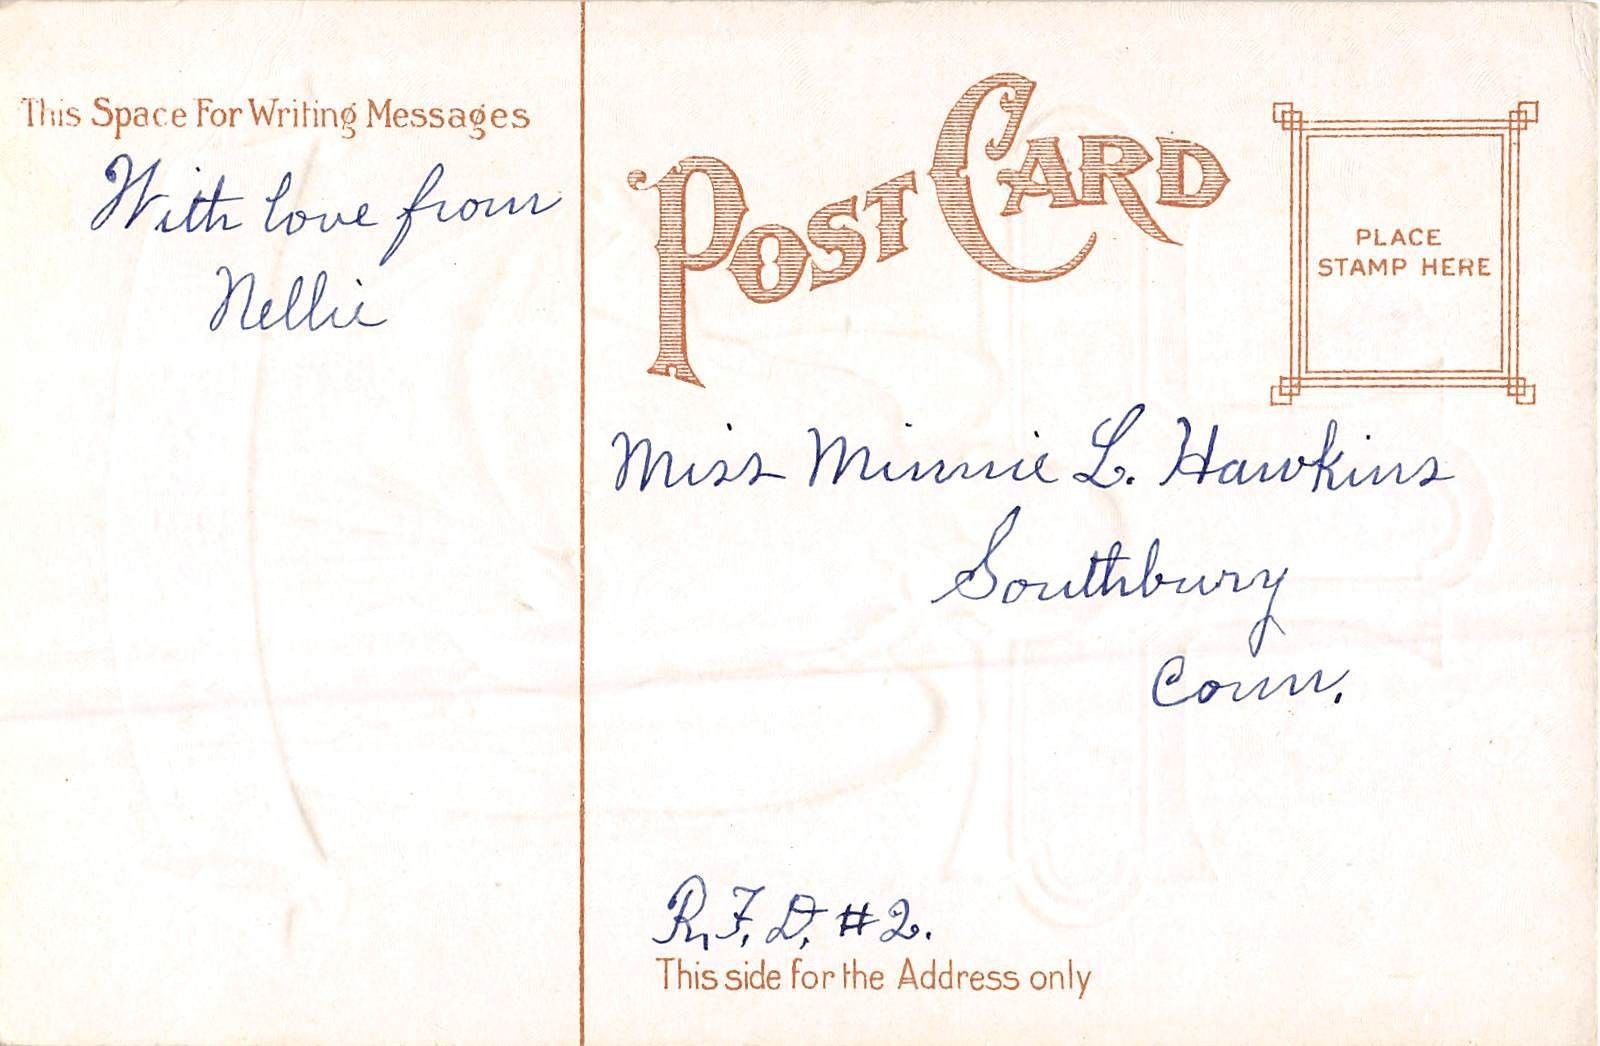 This Space For Writing Messages
With love from
Nellie
POST CARD
PLACE
STAMP HERE
Miss Minnie L. Hawkins
Southbury
Conn.
R.F.D. #2.
This side for the Address only